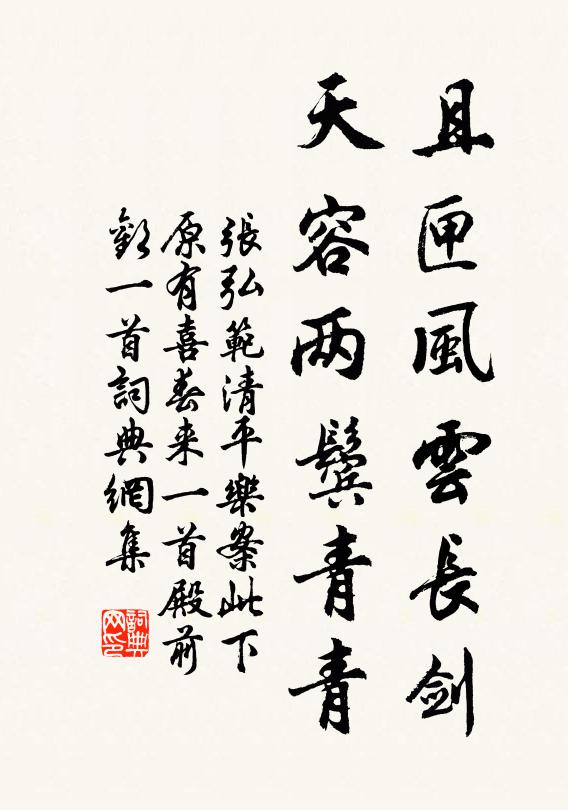 且匣風雲長劍
天容两鬓青青
張弘範清平樂案此下
原有喜春来一首殿前
歡一首詞典網集
詞典
网印